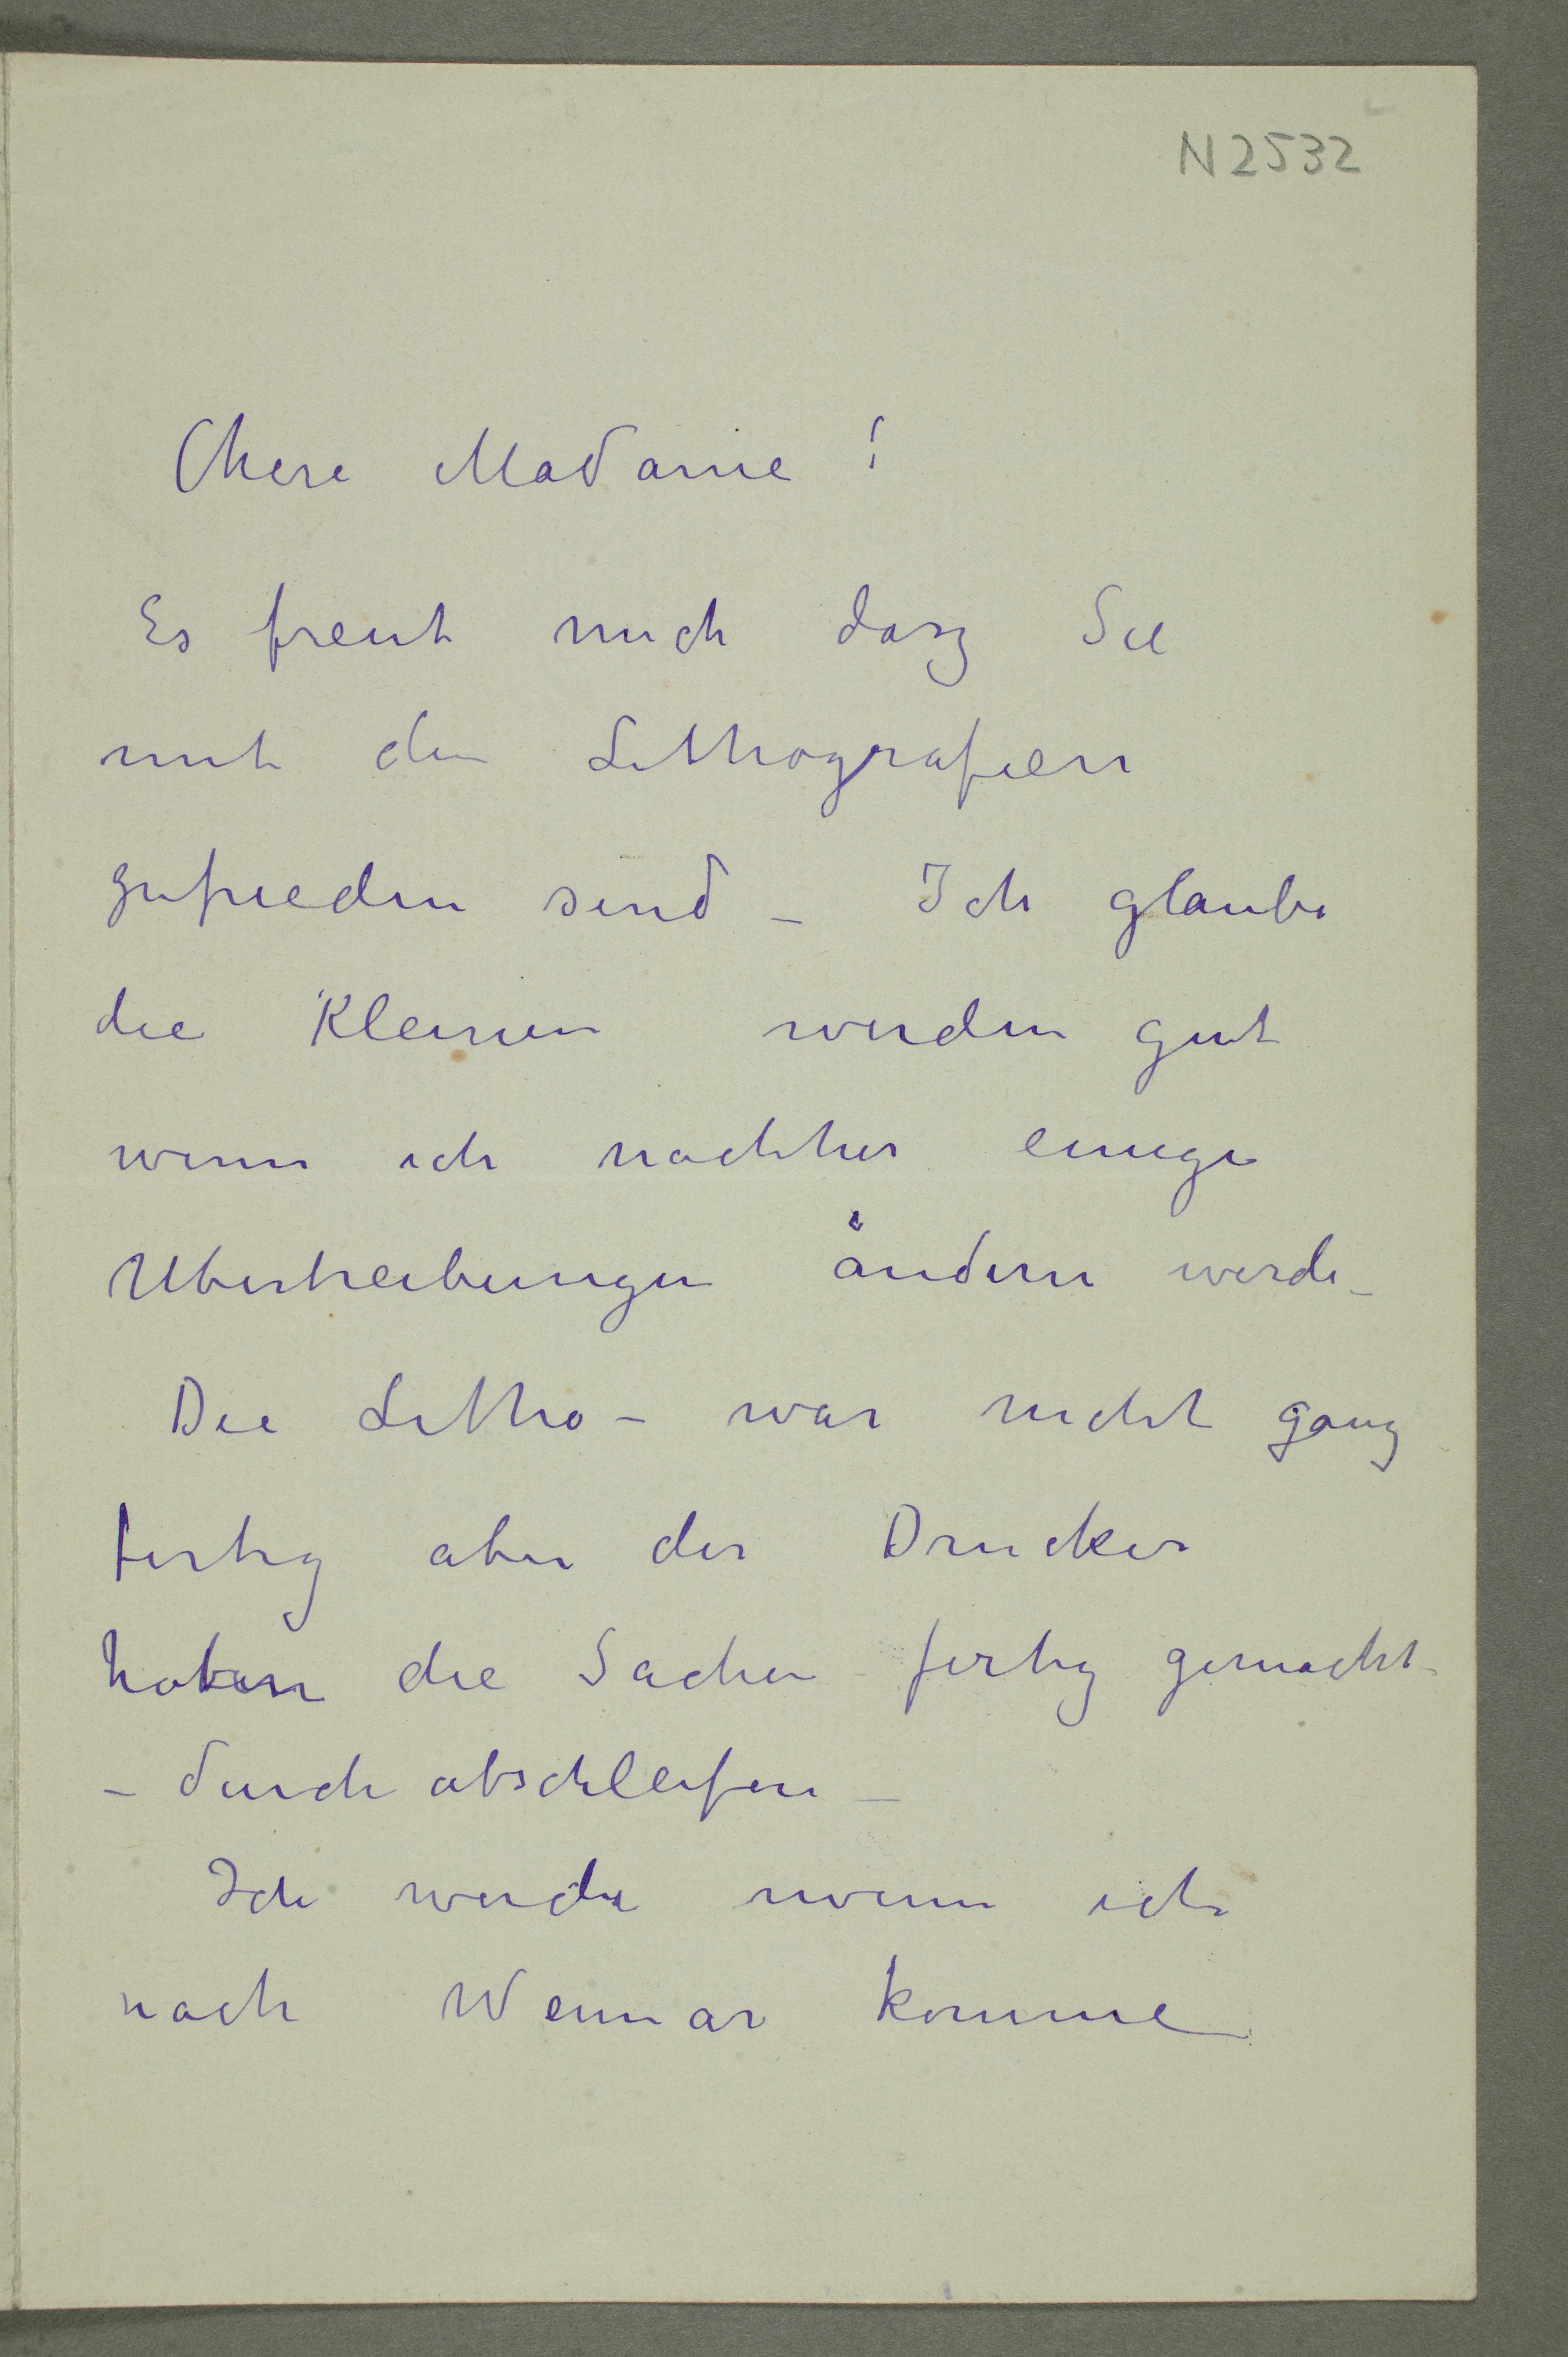 N 2532
Chere Madame!
Es freut mich dasz Sie
mit den Lithografien
zufrieden sind – Ich glaube
die Kleinen werden gut
wenn ich nachher einige
Ubertreibungen ändern werde –
Die Litho – war nicht ganz
fertig aber der Drucker
haben die Sachen fertig gemacht –
– durch abschleifen –
Ich werde wenn ich
nach Weimar komme